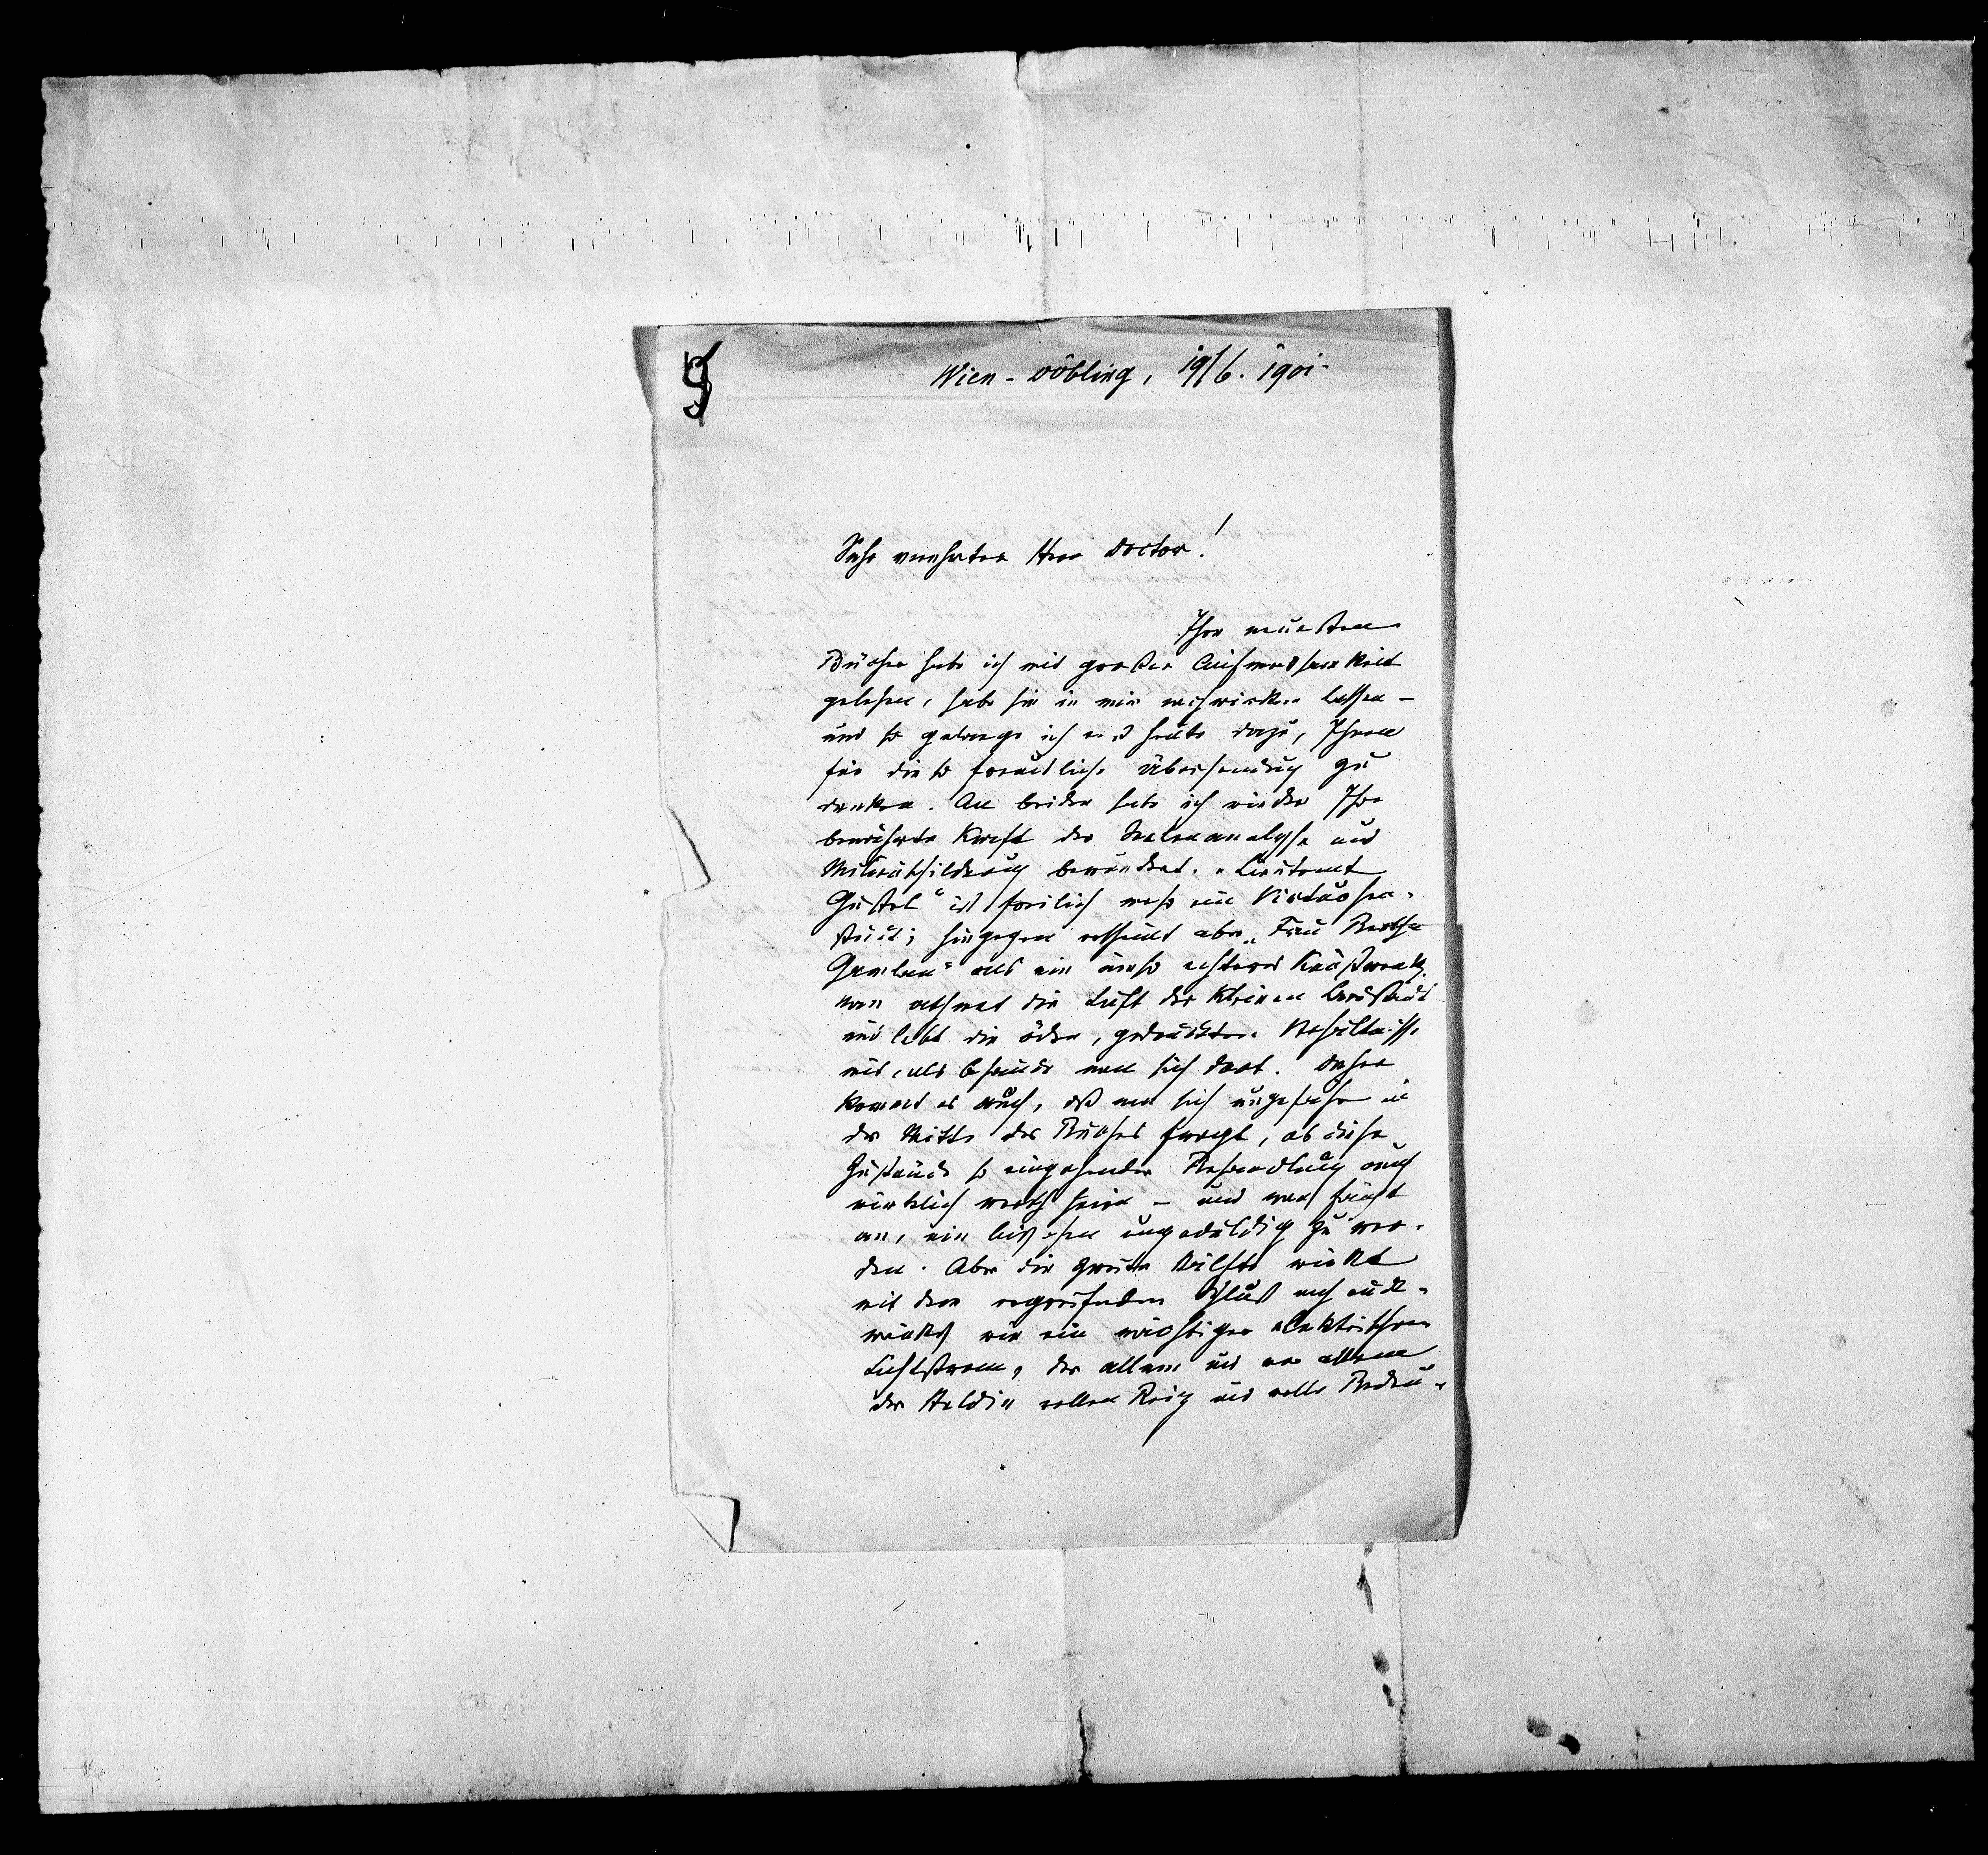 Wien-Döbling, 19/6. 1901.
Sehr verehrter Herr Doctor!
Ihre neuesten
Bücher habe ich mit großer Aufmerksamkeit
gelesen, habe sie in mir nachwirken lassen –
und so gelange ich erst heute dazu, Ihnen
für die so freundliche Übersendung zu
danken. An beiden habe ich wieder Ihre
bewährte Kraft der Seelenanalyse und
Milieuschilderung bewundert. „Lieutenant
Gustl“ ist freilich mehr ein Virtuosen-
stück; hingegen erscheint aber „Frau Bertha
Garlan“ als ein umso echteres Kunstwerk.
Man athmet die Luft der kleinen Landstadt
und lebt die öden, gedrückten Verhältnisse
mit, als befände man sich dort. Daher
kommt es auch, daß man sich ungefähr in
der Mitte des Buches fragt, ob diese
Zustände so eingehender Behandlung auch
wirklich werth seien – und man fängt
an, ein bißchen ungeduldig zu wer-
den. Aber die zweite Hälfte wirkt
mit dem ergreifenden Schluß nach rück-
wärts wie ein mächtiger elektrischer
Lichtstrom, der allem und vor allem
der Heldin vollen Reiz und volle Bedeu-